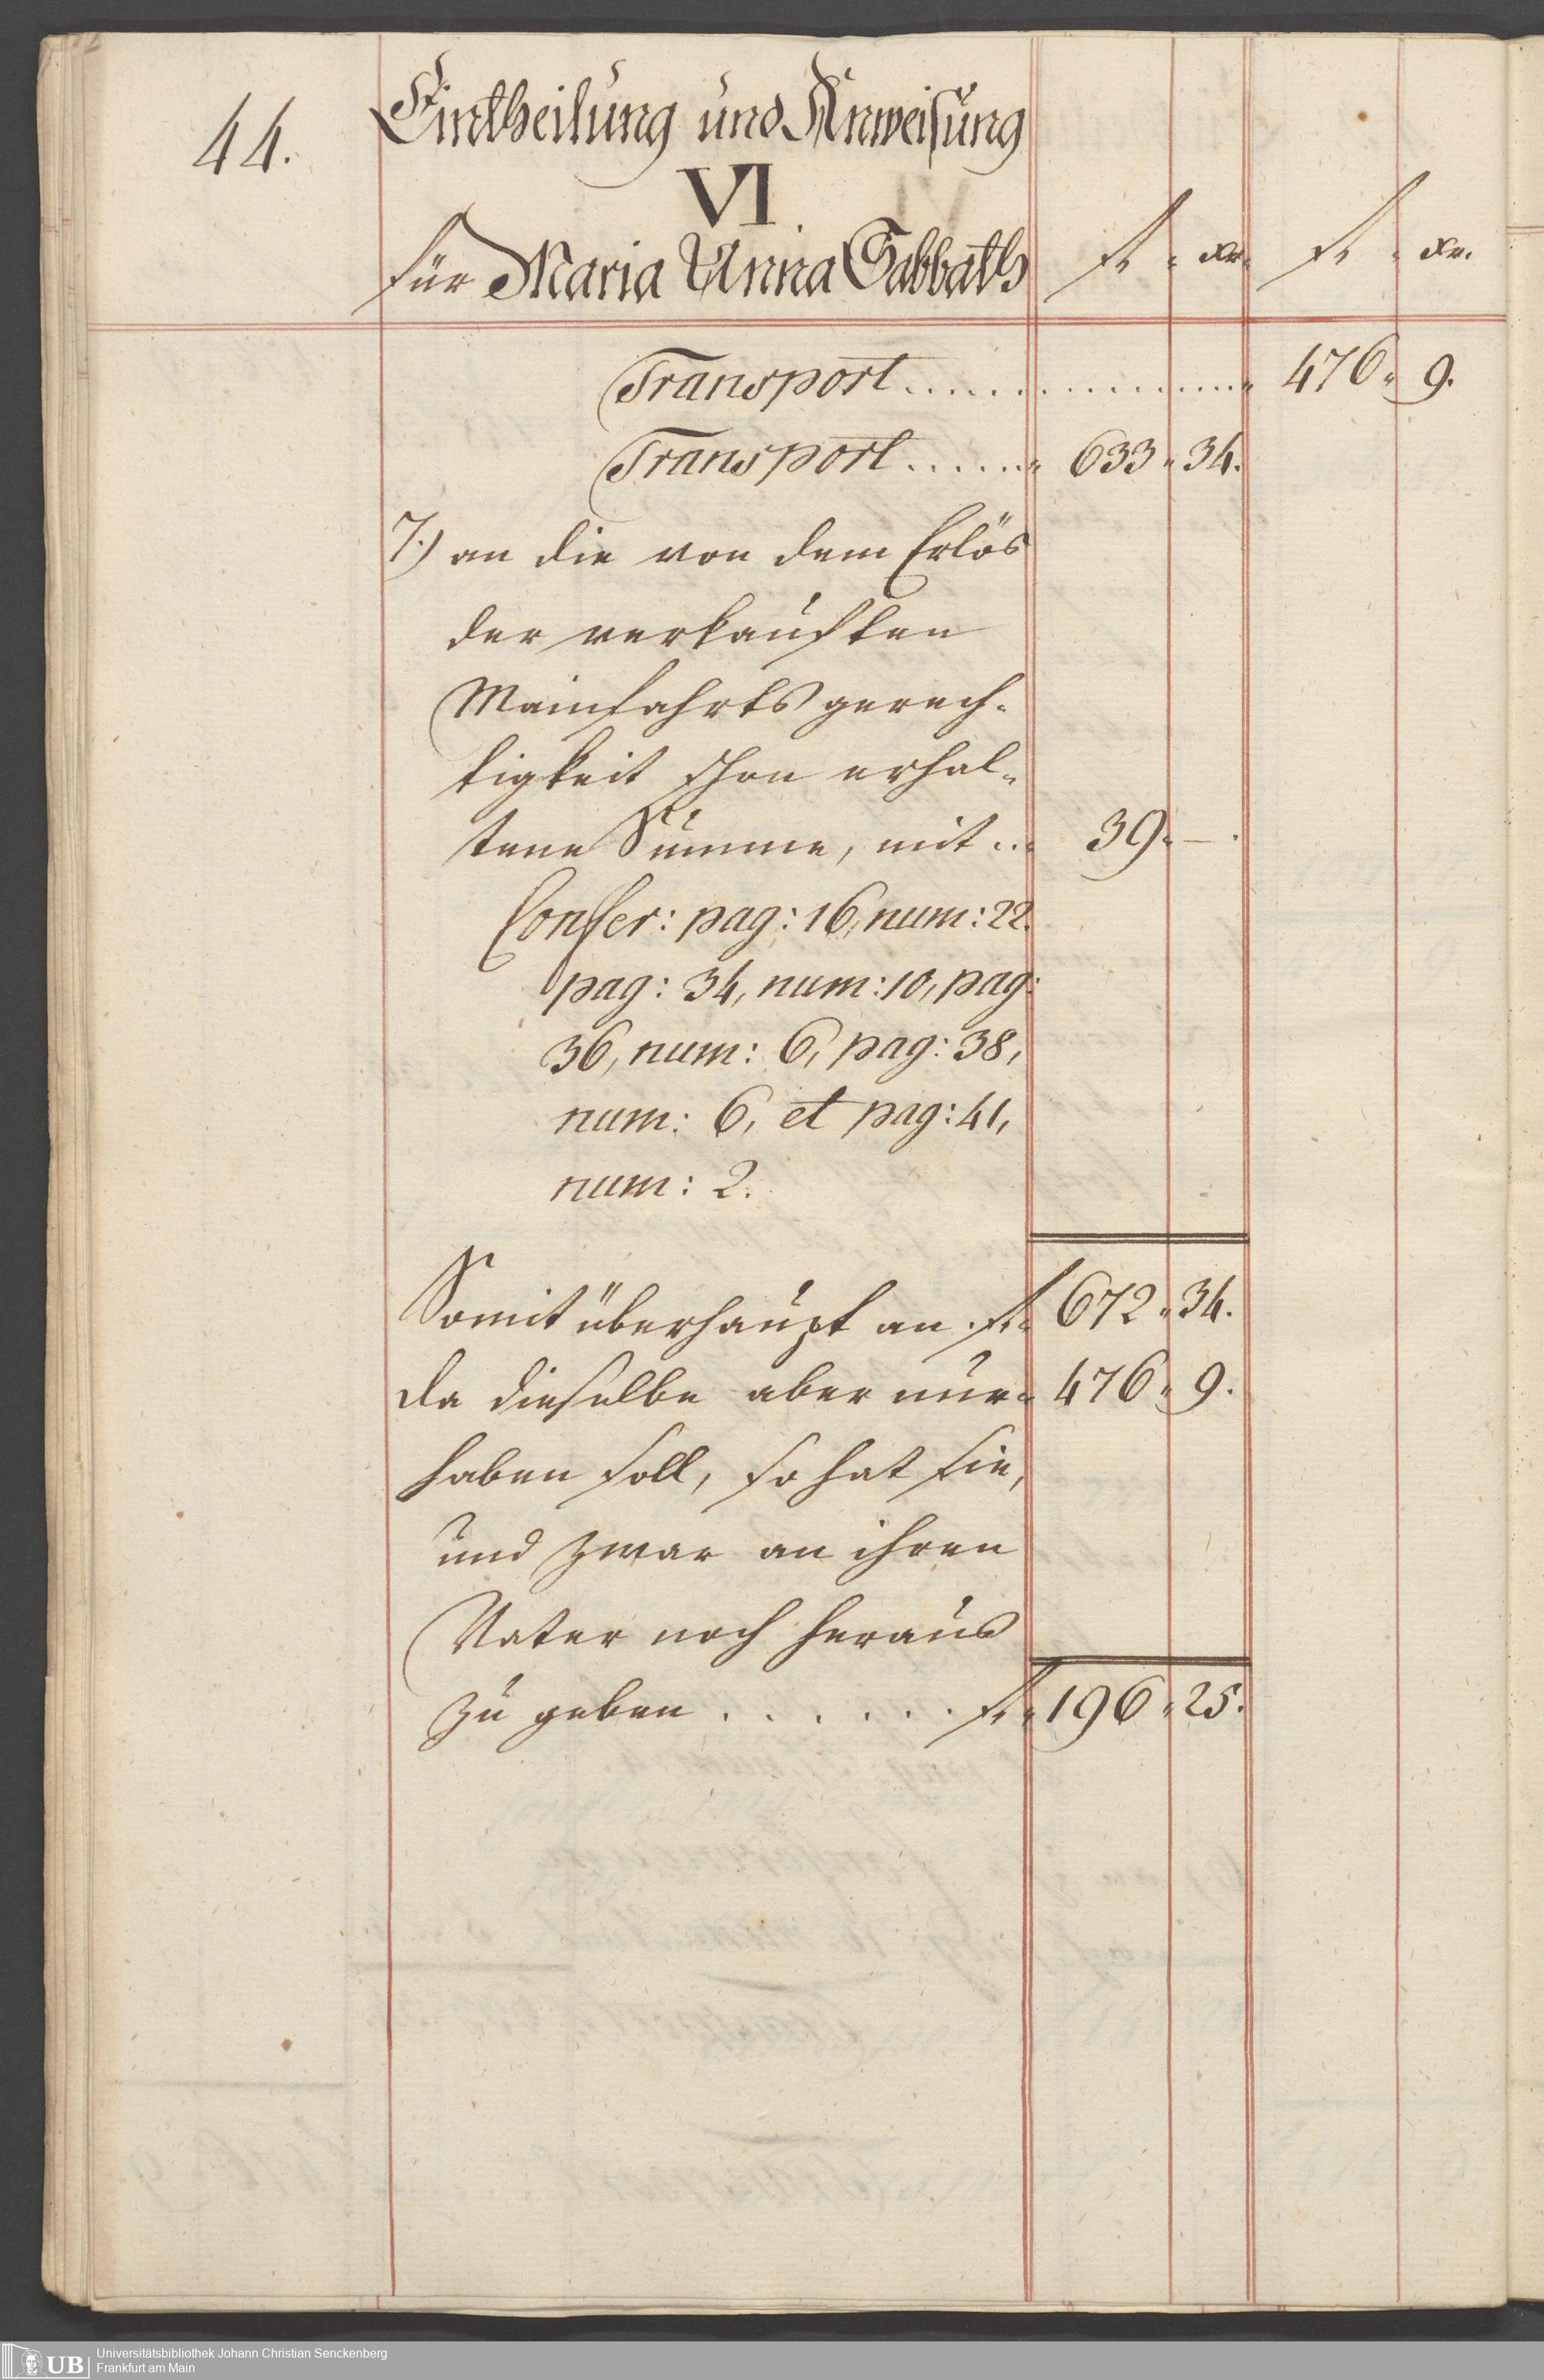 44.
Eintheilung und Anweisung
VI.
für Maria Anna Sabbath
fl. xr. fl. xr.
Transport .................. 476. 9.
Transport ....... 633. 34.
7.) an die von dem Erlös
der verkauften
Mainfahrtsgerech-
tigkeit schon erhal-
tene Summe, mit ... 39. — .
Confer: pag: 16, num: 22.
pag: 34, num: 10, pag:
36, num: 6, pag: 38,
num: 6, et pag: 41,
num: 2.
Somit überhaupt an . fl. 672. 34.
da dieselbe aber nur 476. 9.
haben soll, so hat sie,
und zwar an ihren
Vater noch heraus
zu geben . . . . . . fl. 196. 25.
UB
Universitätsbibliothek Johann Christian Senckenberg
Frankfurt am Main